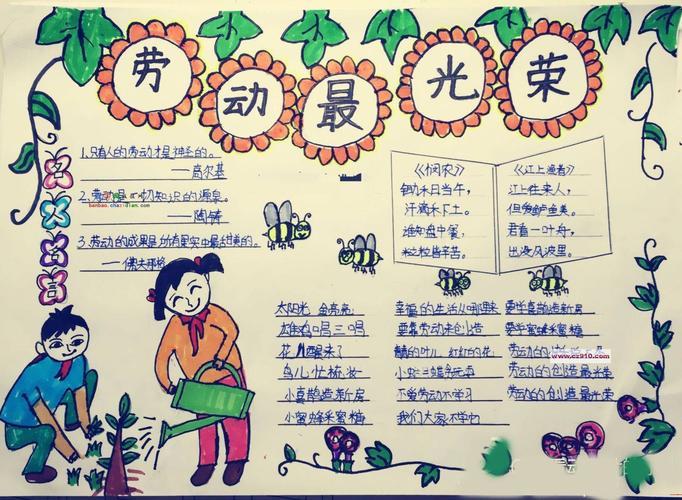 劳动最光荣
名人名言
1.只有人的劳动才是神圣的。
——高尔基
2.劳动是一切知识的源泉。
banbao.chazidian.com
——陶铸
3.劳动的成果是所有果实中最甜美的。
《悯农》
锄禾日当午，
汗滴禾下土。
谁知盘中餐，
粒粒皆辛苦。
《江上渔者》
江上往来人，
但爱鲈鱼美。
君看一叶舟，
出没风波里。
太阳光 金亮亮
雄鸡唱三唱
花儿醒来了
鸟儿忙梳妆
小喜鹊造新房
小蜜蜂采蜜糖
幸福的生活从哪里来
要靠劳动来创造
青青的叶儿 红红的花
小蝴蝶贪玩耍
不爱劳动不学习
我们大家不学它
要学喜鹊造新房
要学蜜蜂采蜜糖
劳动的
www.cz910.com
劳动的创造最光荣
劳动的创造最光荣